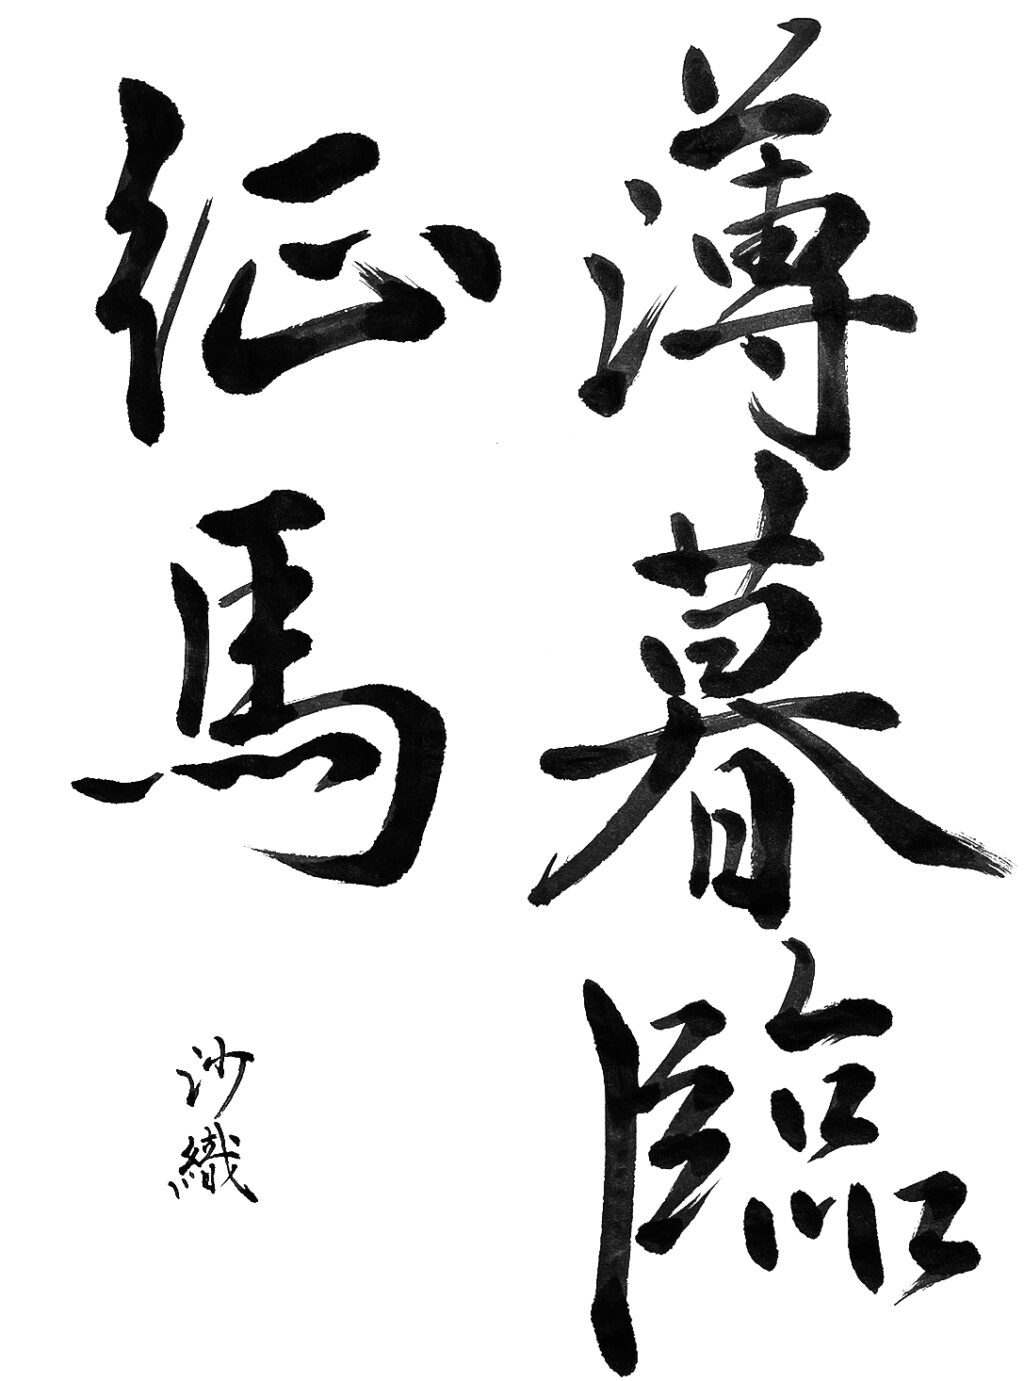 薄暮臨
征馬
沙織